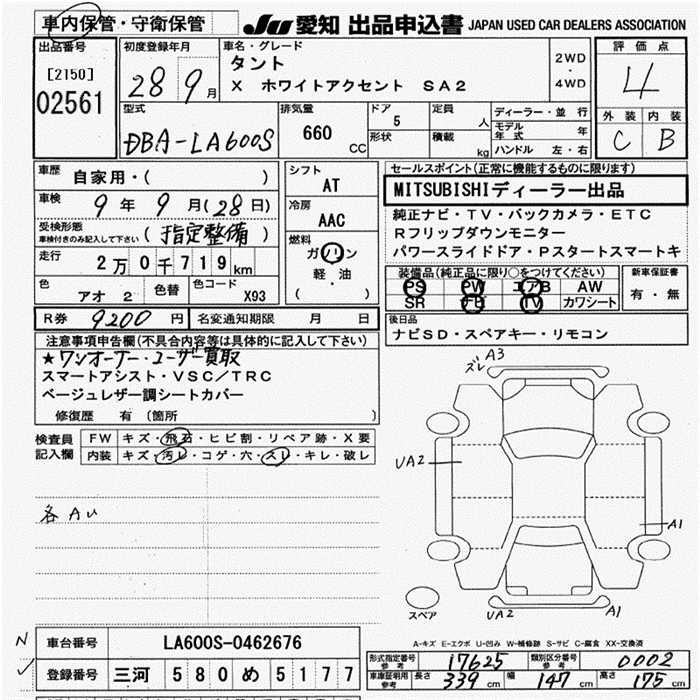 車内保管・守衛保管 JU 愛知 出品申込書 JAPAN USED CAR DEALERS ASSOCIATION
出品番号
[2150]
02561
初度登録年月
28 9月
車名・グレード
タント
X ホワイトアクセント SA2
2WD
・
4WD
評価点
4
外装 内装
C B
型式
DBA-LA600S
排気量
660 CC
ドア 5
形状
定員 人
積載 kg
ディーラー・並行
モデル年式 年
ハンドル 左・右
車歴
自家用・( )
車検
9年 9月(28日)
受検形態
車検付きのみ記入して下さい
(指定整備)
走行
2万0千719km
色
アオ 2
色替
色コード
X93
シフト
AT
冷房
AAC
燃料
ガソリン
軽・油
( )
R券 9200円
名変通知期限 月 日
セールスポイント(正常に機能するものに限ります)
MITSUBISHIディーラー出品
純正ナビ・TV・バックカメラ・ETC
Rフリップダウンモニター
パワースライドドア・Pスタートスマートキ
装備品(純正品に限り○をつけてください)
PS PW エアB AW
SR TV カワシート
新車保証書
有・無
後日品
ナビSD・スペアキー・リモコン
注意事項申告欄(不具合内容等は具体的に記入して下さい)
★ワンオーナー・ユーザー買取
スマートアシスト・VSC/TRC
ベージュレザー調シートカバー
修復歴 有(箇所 )
検査員
記入欄
FW キズ・飛石・ヒビ割・リペア跡・X要
内装 キズ・汚レ・コゲ・穴・スレ・キレ・破レ
各AU
A3
ズレ
UA2
A1
スペア
UA2
A1
A-キズ E-エクボ U-凹み W-補修跡 S-サビ C-腐食 XX-交換済
N
車台番号 LA600S-0462676
登録番号 三河 580 め 5177
形式指定番号
参考
17625
類別区分番号
参考
0002
車庫証明用
参考
長さ 339cm 幅 147cm 高さ 175cm